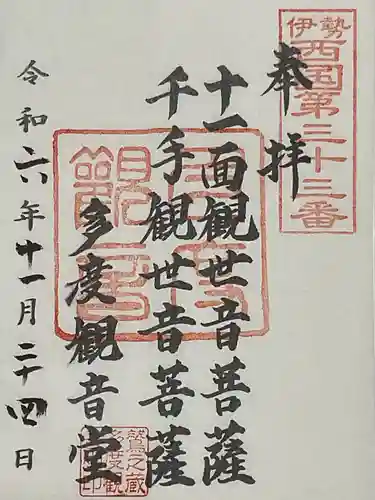 伊勢
西国第三十三番
奉拝
十一面観世音菩薩
千手観世音菩薩
多度観音堂
令和六年十一月二十四日